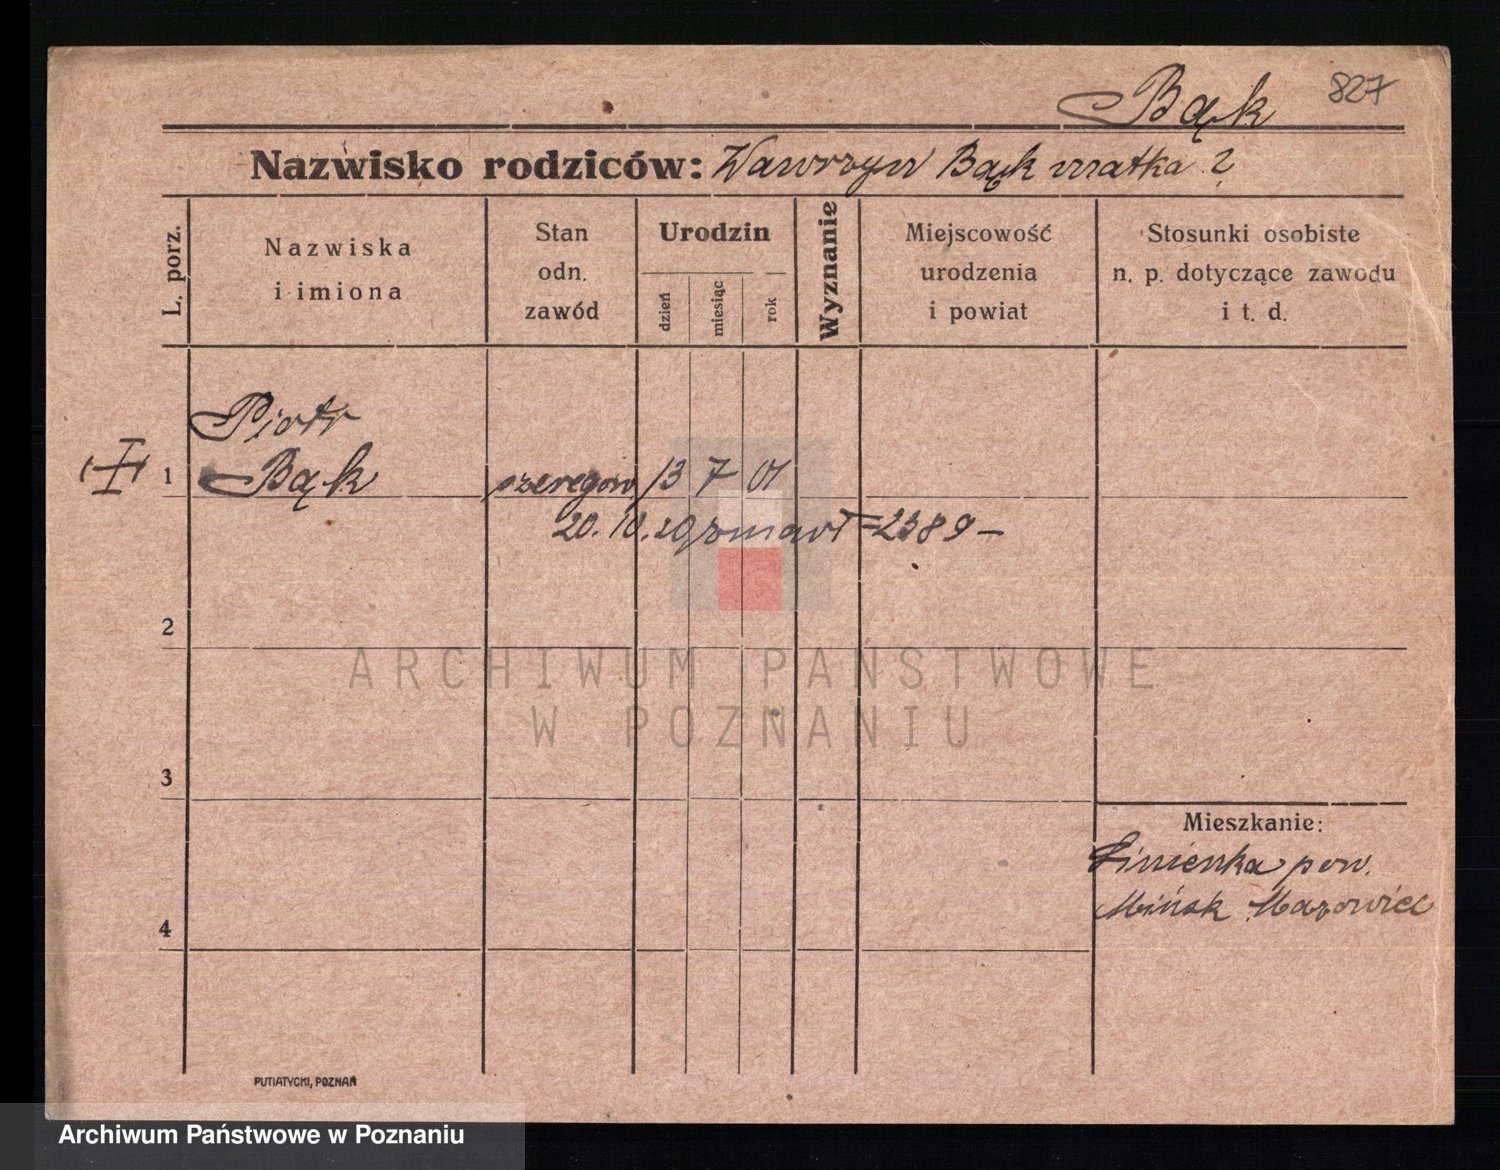 827
Bąk
Nazwisko rodziców: Wawrzyn Bąk matka ?
L. porz.
Nazwiska i imiona
Stan odn. zawód
Urodzin
dzień
miesiąc
rok
Wyznanie
Miejscowość urodzenia i powiat
Stosunki osobiste n. p. dotyczące zawodu i t. d.
Piotr
1 Bąk szeregow. 13 7 01
20. 10. 20 zmarł = 2389 –
2
3
4
Mieszkanie:
pow.
Mińsk Mazowiec
PUTIATYCKI, POZNAŃ
ARCHIWUM PAŃSTWOWE
W POZNANIU
Archiwum Państwowe w Poznaniu